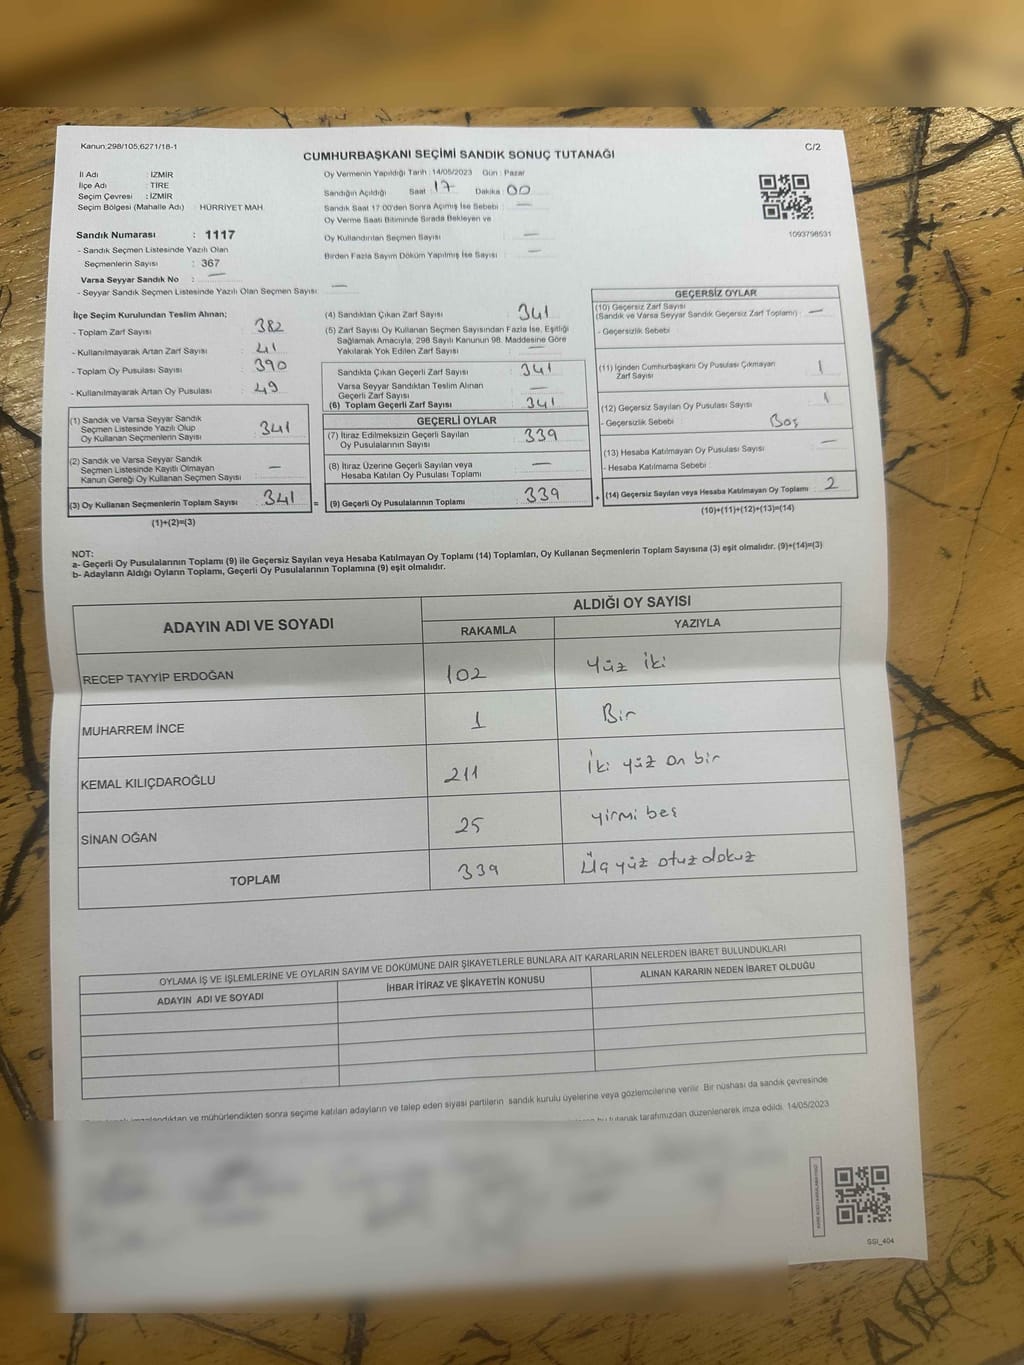 Kanun:298/105,6271/18-1
C/2
CUMHURBAŞKANI SEÇİMİ SANDIK SONUÇ TUTANAĞI
İl Adı : İZMİR
İlçe Adı : TİRE
Seçim Çevresi : İZMİR
Seçim Bölgesi (Mahalle Adı) : HÜRRİYET MAH.
Sandık Numarası : 1117
- Sandık Seçmen Listesinde Yazılı Olan
Seçmenlerin Sayısı : 367
Varsa Seyyar Sandık No : —
- Seyyar Sandık Seçmen Listesinde Yazılı Olan Seçmen Sayısı: —
Oy Vermenin Yapıldığı Tarih : 14/05/2023 Gün : Pazar
Sandığın Açıldığı Saat : 17 Dakika : 00
Sandık Saat 17:00'den Sonra Açımış İse Sebebi : —
Oy Verme Saati Bitiminde Sırada Bekleyen ve
Oy Kullandırılan Seçmen Sayısı : —
Birden Fazla Sayım Döküm Yapılmış İse Sayısı : —
1093798531
İlçe Seçim Kurulundan Teslim Alınan;
- Toplam Zarf Sayısı : 382
- Kullanılmayarak Artan Zarf Sayısı : 41
- Toplam Oy Pusulası Sayısı : 390
- Kullanılmayarak Artan Oy Pusulası : 49
(1) Sandık ve Varsa Seyyar Sandık
Seçmen Listesinde Yazılı Olup
Oy Kullanan Seçmenlerin Sayısı : 341
(2) Sandık ve Varsa Seyyar Sandık
Seçmen Listesinde Kayıtlı Olmayan
Kanun Gereği Oy Kullanan Seçmen Sayısı : —
(3) Oy Kullanan Seçmenlerin Toplam Sayısı : 341
(1)+(2)=(3)
(4) Sandıktan Çıkan Zarf Sayısı : 341
(5) Zarf Sayısı Oy Kullanan Seçmen Sayısından Fazla İse, Eşitliği
Sağlamak Amacıyla, 298 Sayılı Kanunun 98. Maddesine Göre
Yakılarak Yok Edilen Zarf Sayısı : —
Sandıkta Çıkan Geçerli Zarf Sayısı : 341
Varsa Seyyar Sandıktan Teslim Alınan
Geçerli Zarf Sayısı : —
(6) Toplam Geçerli Zarf Sayısı : 341
GEÇERLİ OYLAR
(7) İtiraz Edilmeksizin Geçerli Sayılan
Oy Pusulalarının Sayısı : 339
(8) İtiraz Üzerine Geçerli Sayılan veya
Hesaba Katılan Oy Pusulası Toplamı : —
= (9) Geçerli Oy Pusulalarının Toplamı : 339
GEÇERSİZ OYLAR
(10) Geçersiz Zarf Sayısı
(Sandık ve Varsa Seyyar Sandık Geçersiz Zarf Toplamı) : —
- Geçersizlik Sebebi
(11) İçinden Cumhurbaşkanı Oy Pusulası Çıkmayan
Zarf Sayısı : 1
(12) Geçersiz Sayılan Oy Pusulası Sayısı : 1
- Geçersizlik Sebebi : Boş
(13) Hesaba Katılmayan Oy Pusulası Sayısı : —
- Hesaba Katılmama Sebebi
+ (14) Geçersiz Sayılan veya Hesaba Katılmayan Oy Toplamı : 2
(10)+(11)+(12)+(13)=(14)
NOT:
a- Geçerli Oy Pusulalarının Toplamı (9) ile Geçersiz Sayılan veya Hesaba Katılmayan Oy Toplamı (14) Toplamları, Oy Kullanan Seçmenlerin Toplam Sayısına (3) eşit olmalıdır. (9)+(14)=(3)
b- Adayların Aldığı Oyların Toplamı, Geçerli Oy Pusulalarının Toplamına (9) eşit olmalıdır.
ADAYIN ADI VE SOYADI ALDIĞI OY SAYISI
RAKAMLA YAZIYLA
RECEP TAYYİP ERDOĞAN 102 Yüz iki
MUHARREM İNCE 1 Bir
KEMAL KILIÇDAROĞLU 211 İki yüz on bir
SİNAN OĞAN 25 yirmi beş
TOPLAM 339 Üç yüz otuz dokuz
OYLAMA İŞ VE İŞLEMLERİNE VE OYLARIN SAYIM VE DÖKÜMÜNE DAİR ŞİKAYETLERLE BUNLARA AİT KARARLARIN NELERDEN İBARET BULUNDUKLARI
ADAYIN ADI VE SOYADI İHBAR İTİRAZ VE ŞİKAYETİN KONUSU ALINAN KARARIN NEDEN İBARET OLDUĞU
ve mühürlendikten sonra seçime katılan adayların ve talep eden siyasi partilerin sandık kurulu üyelerine veya gözlemcilerine verilir. Bir nüshası da sandık çevresinde
bu tutanak tarafımızdan düzenlenerek imza edildi. 14/05/2023
SSI_404